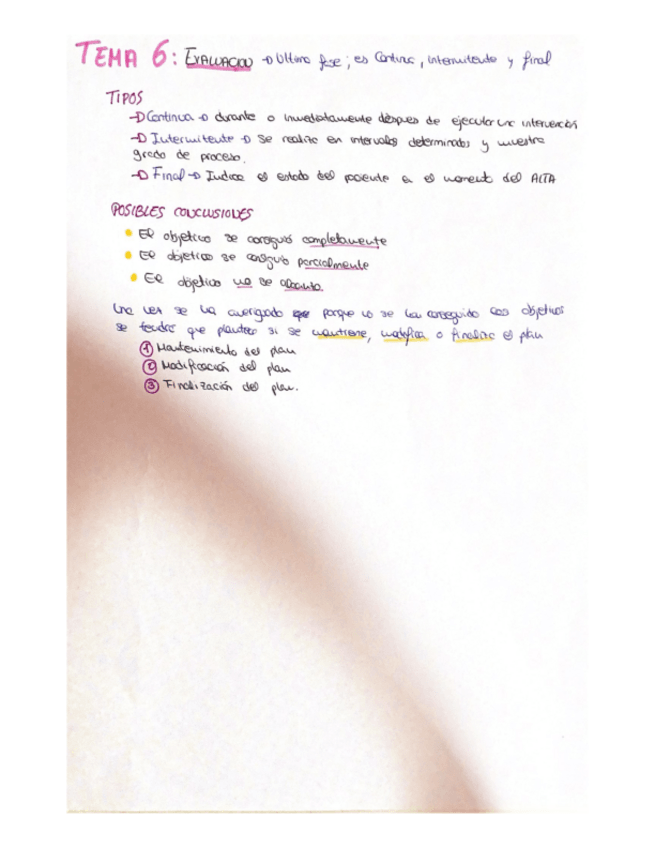 TEMA 6: EVALUACION → Última fase; es Continua, intermitente y final
TIPOS
→ Continua → durante o inmediatamente después de ejecutar una intervención
→ Intermitente → Se realiza en intervalos determinados y muestra
grado de proceso.
→ Final → Indica el estado del paciente en el momento del ALTA
POSIBLES CONCLUSIONES
• El objetivo se consiguió completamente
• El objetivo se consiguió parcialmente
• El objetivo no se alcanzó.
Una vez se ha averiguado porque no se han conseguido los objetivos
se tendrá que plantear si se mantiene, modifica o finaliza el plan
① Mantenimiento del plan
② Modificación del plan
③ Finalización del plan.